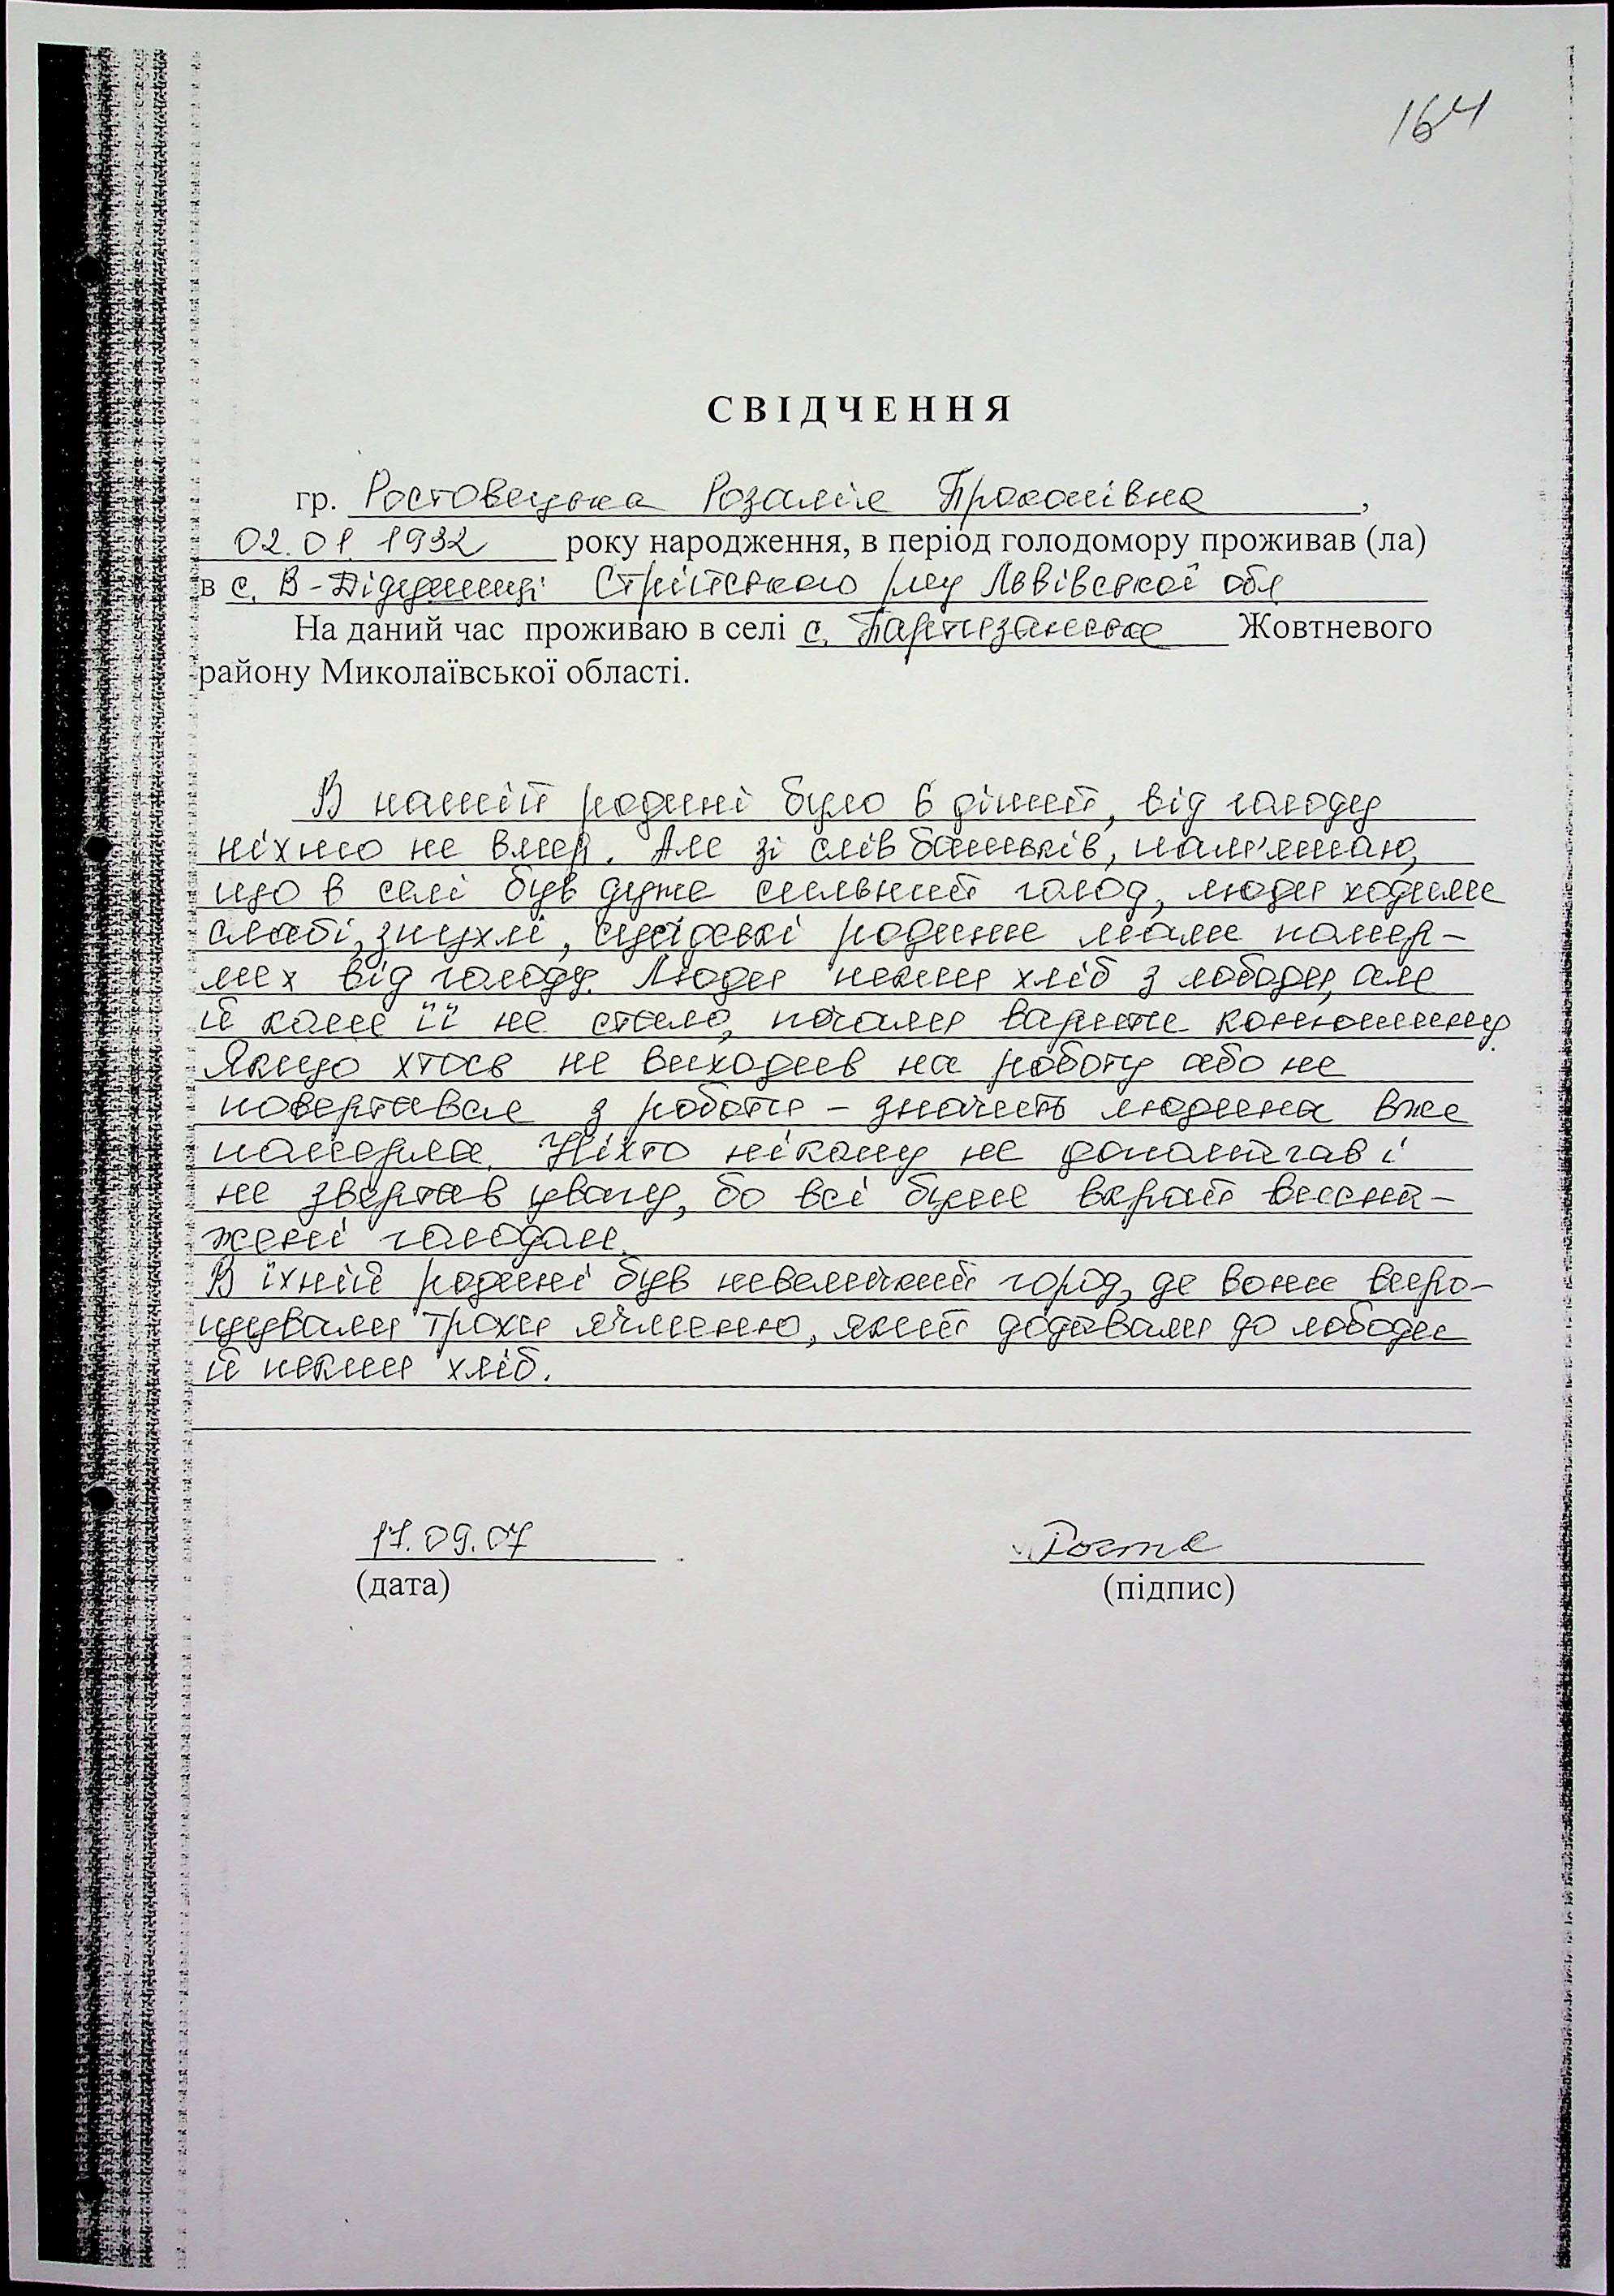 164
СВІДЧЕННЯ
гр. Ростовецька Розалія Прокопівна,
02.01.1932 року народження, в період голодомору проживав (ла)
в с. В-Дідушиці Стрийського р-ну Львівської обл
На даний час проживаю в селі с. Партизанське Жовтневого
району Миколаївської області.
В нашій родині було 6 дітей, від голоду
ніхто не вмер. Але зі слів батьків, пам'ятаю,
що в селі був дуже сильний голод, люди ходили
слабі, зпухлі, сусідські родини мали помер-
лих від голоду. Люди пекли хліб з лободи, але
й коли її не стало, почали варити конюшину.
Якщо хтось не виходив на роботу або не
повертався з роботи – значить людина вже
померла. Ніхто нікому не допомагав і
не звертав увагу, бо всі були вкрай висна-
жені голодом.
В їхній родині був невеличкий город, де вони виро-
щували трохи ячменю, який додавали до лободи
й пекли хліб.
17.09.07
(дата)
(підпис)